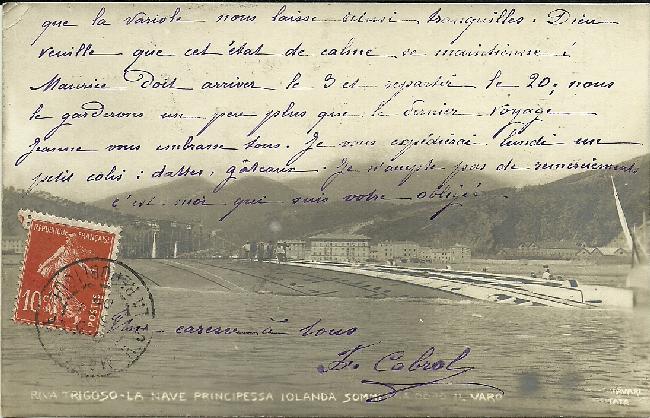 que la variole nous laisse ainsi tranquilles. Dieu
veuille que cet état de calme se maintienne !
Maurice doit arriver le 3 et repartir le 20 ; nous
le garderons un peu plus que le dernier voyage
Jeanne vous embrasse tous. Je vous expédierai lundi un
petit colis : dattes, gâteaux. Je n'accepte pas de remerciements
c'est moi qui suis votre obligée
REPUBLIQUE FRANÇAISE
10
POSTES
Une caresse à tous
Fr. Cabrol
RIVA TRIGOSO - LA NAVE PRINCIPESSA IOLANDA SOMMERSA DOPO IL VARO